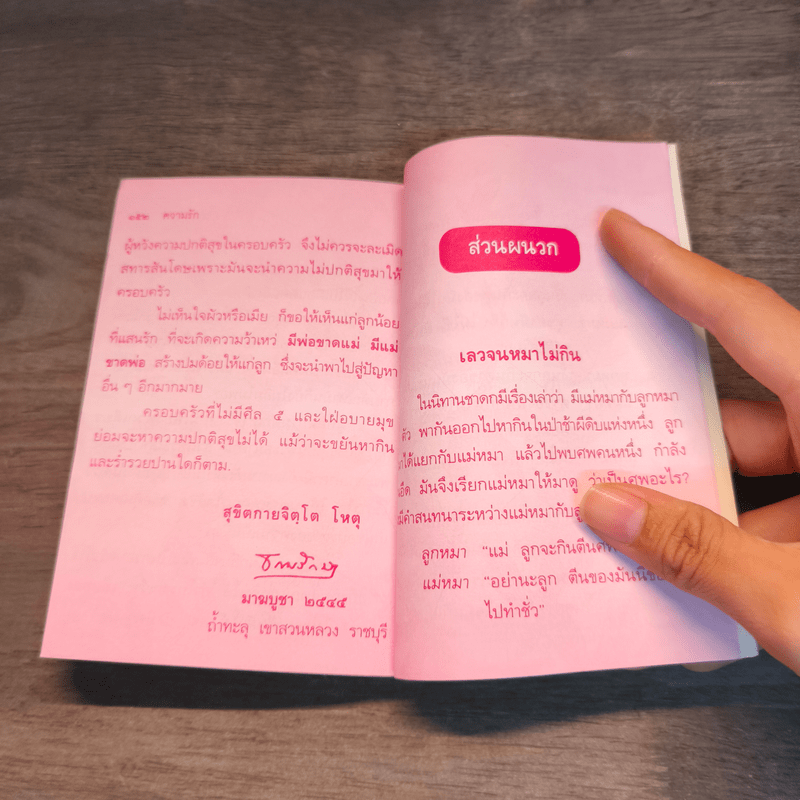 ๑๕๒ ความรัก
ผู้หวังความปกติสุขในครอบครัว จึงไม่ควรจะละเมิด
สทารสันโดษเพราะมันจะนำความไม่ปกติสุขมาให้
ครอบครัว
ไม่เห็นใจผัวหรือเมีย ก็ขอให้เห็นแก่ลูกน้อย
ที่แสนรัก ที่จะเกิดความว้าเหว่ มีพ่อขาดแม่ มีแม่
ขาดพ่อ สร้างปมด้อยให้แก่ลูก ซึ่งจะนำพาไปสู่ปัญหา
อื่น ๆ อีกมากมาย
ครอบครัวที่ไม่มีศีล ๕ และใฝ่อบายมุข
ย่อมจะหาความปกติสุขไม่ได้ แม้ว่าจะขยันหากิน
และร่ำรวยปานใดก็ตาม.
สุขิตกายจิตฺโต โหตุ
มาฆบูชา ๒๕๔๕
ถ้ำทะลุ เขาสวนหลวง ราชบุรี
ส่วนผนวก
เลวจนหมาไม่กิน
ในนิทานชาดกมีเรื่องเล่าว่า มีแม่หมากับลูกหมา
ตัว พากันออกไปหากินในป่าช้าผีดิบแห่งหนึ่ง ลูก
ได้แยกกับแม่หมา แล้วไปพบศพคนหนึ่ง กำลัง
อืด มันจึงเรียกแม่หมาให้มาดู ว่าเป็นศพอะไร?
มีคำสนทนาระหว่างแม่หมากับลู
ลูกหมา “แม่ ลูกจะกินตีนศพ
แม่หมา “อย่านะลูก ตีนของมันนี้
ไปทำชั่ว”